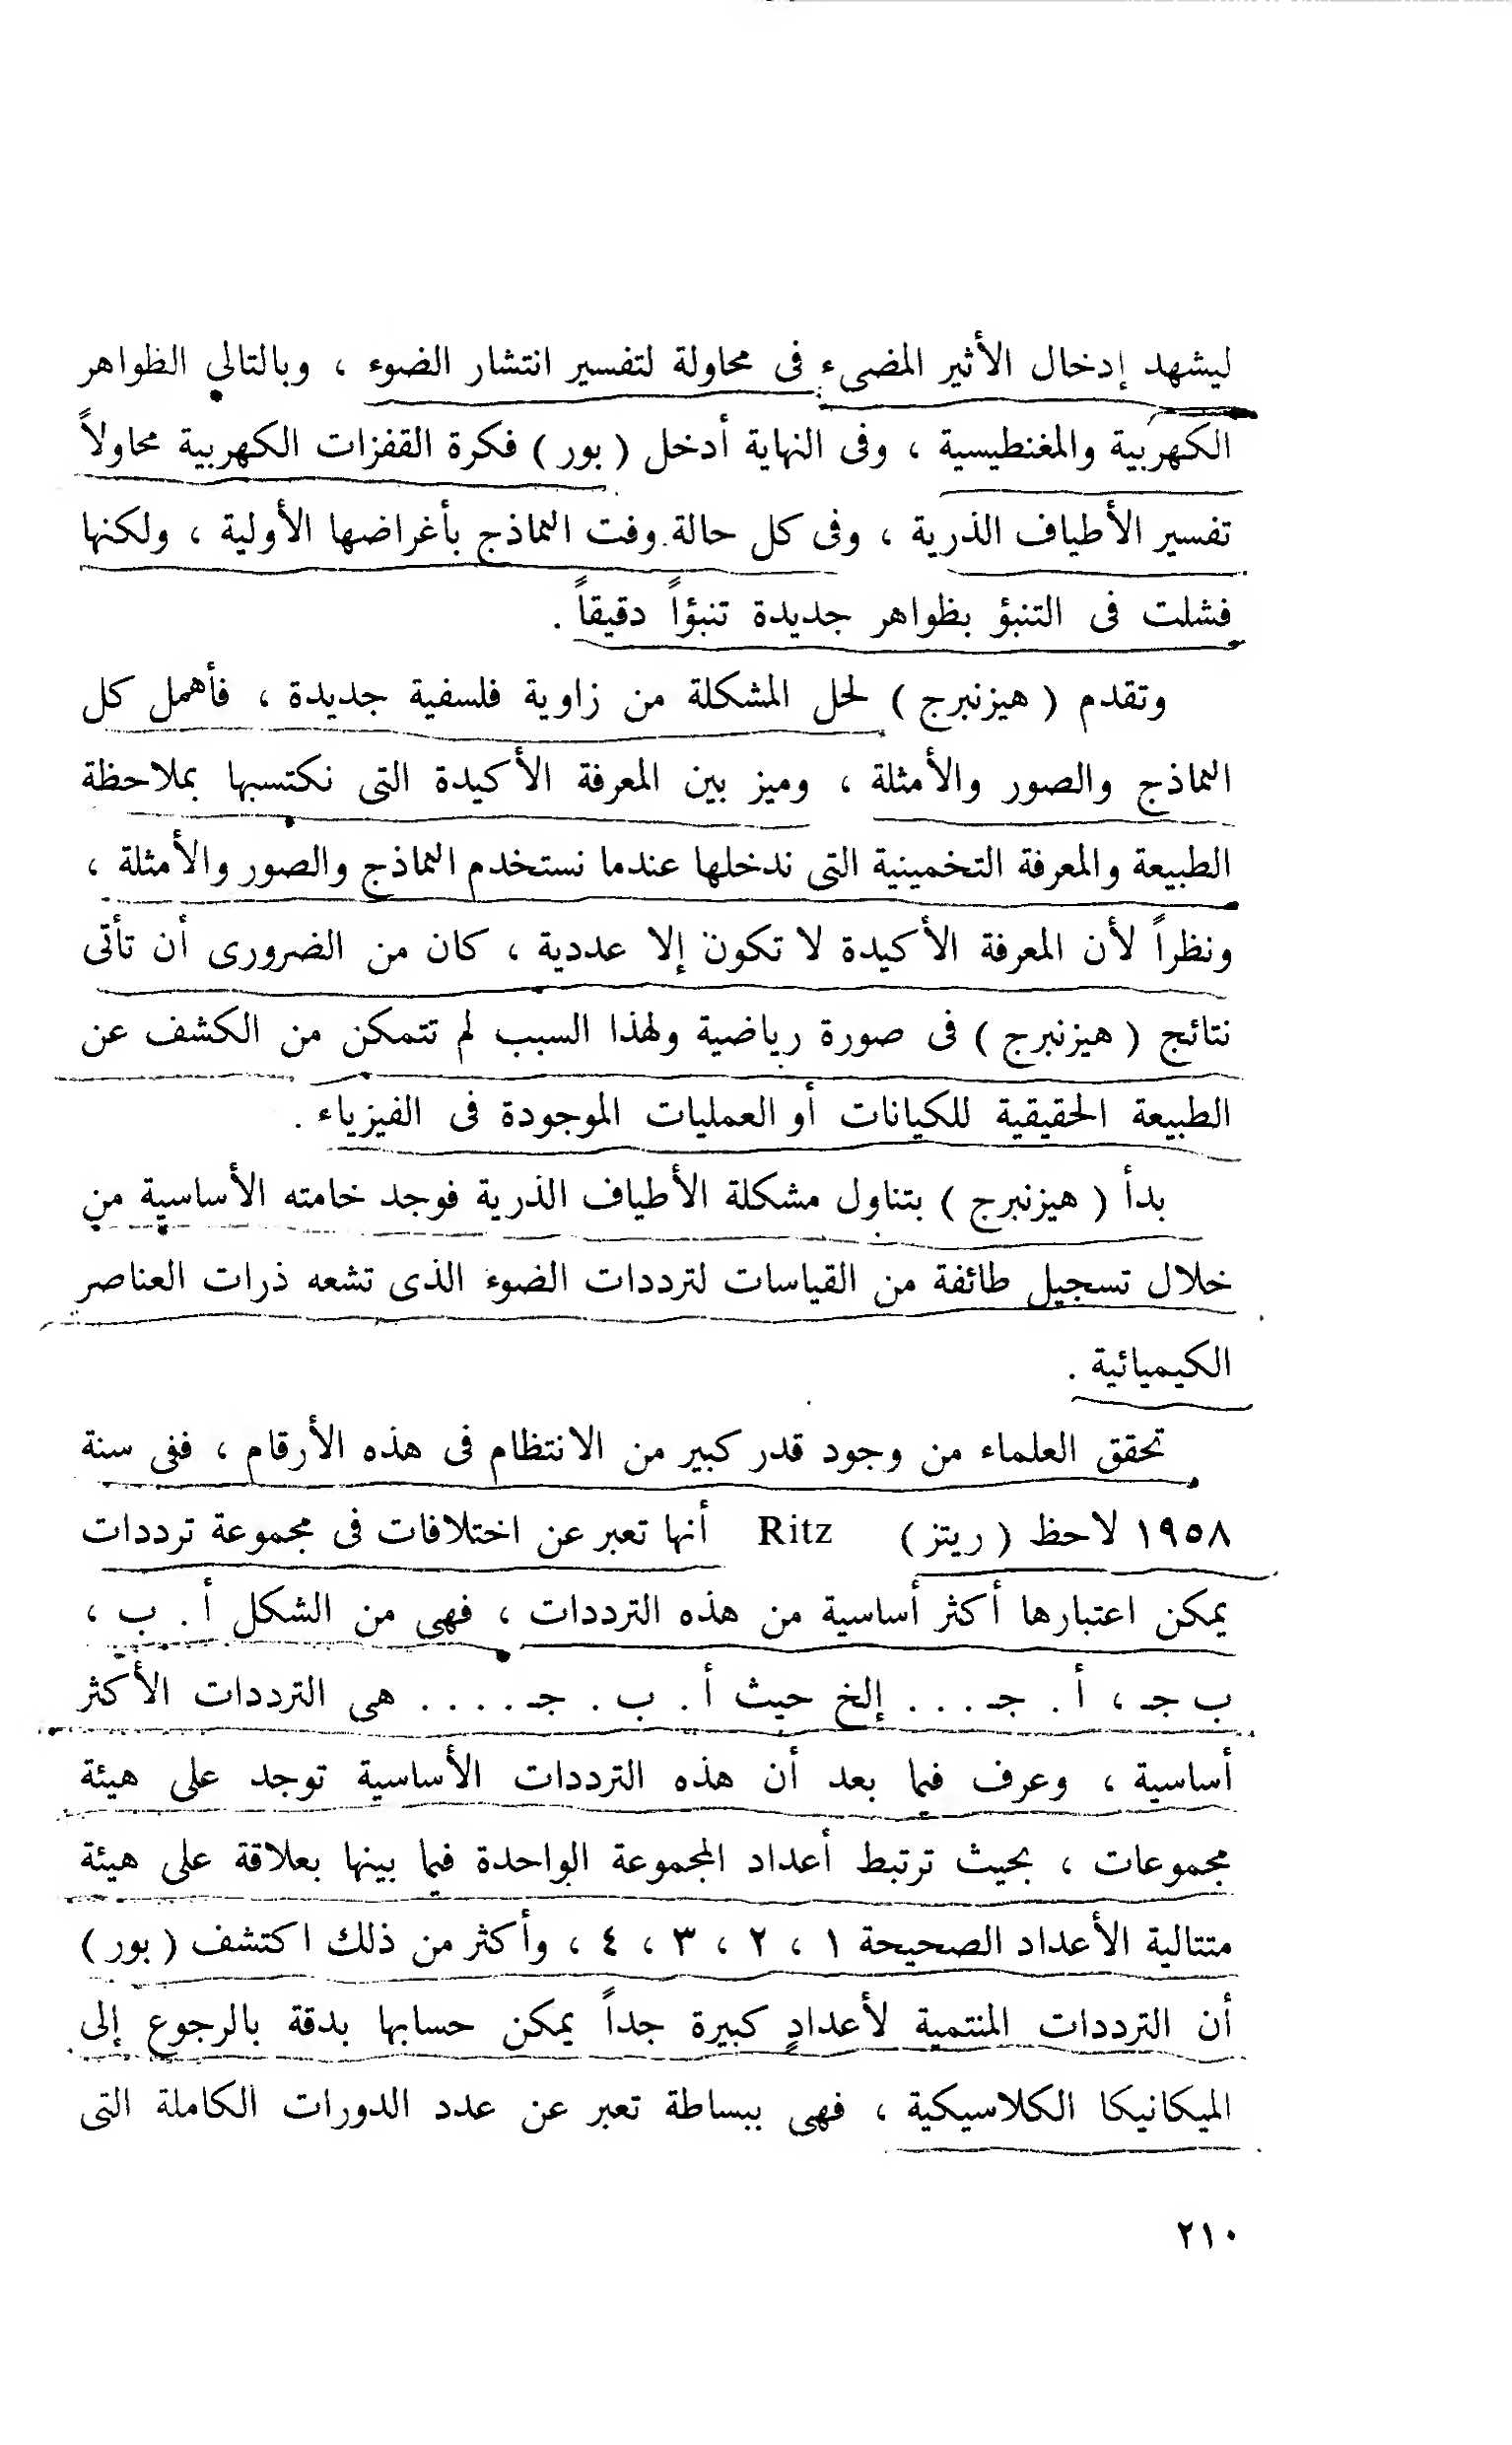 ليشهد إدخال الأثير المضىء فى محاولة لتفسير انتشار الضوء ، وبالتالي الظواهر
الكهربية والمغنطيسية ، وفى النهاية أدخل ( بور ) فكرة القفزات الكهربية محاولاً
تفسير الأطياف الذرية ، وفى كل حالة وفت النماذج بأغراضها الأولية ، ولكنها
فشلت فى التنبؤ بظواهر جديدة تنبؤاً دقيقاً .
وتقدم ( هيزنبرج ) لحل المشكلة من زاوية فلسفية جديدة ، فأهمل كل
النماذج والصور والأمثلة ، وميز بين المعرفة الأكيدة التى نكتسبها بملاحظة
الطبيعة والمعرفة التخمينية التى ندخلها عندما نستخدم النماذج والصور والأمثلة ،
ونظراً لأن المعرفة الأكيدة لا تكون إلا عددية ، كان من الضرورى أن تأتى
نتائج ( هيزنبرج ) فى صورة رياضية ولهذا السبب لم تتمكن من الكشف عن
الطبيعة الحقيقية للكيانات أو العمليات الموجودة فى الفيزياء .
بدأ ( هيزنبرج ) بتناول مشكلة الأطياف الذرية فوجد خامته الأساسية من
خلال تسجيل طائفة من القياسات لترددات الضوء الذى تشعه ذرات العناصر
الكيميائية .
تحقق العلماء من وجود قدر كبير من الانتظام فى هذه الأرقام ، ففى سنة
١٩٥٨ لاحظ ( ريتز ) Ritz أنها تعبر عن اختلافات فى مجموعة ترددات
يمكن اعتبارها أكثر أساسية من هذه الترددات ، فهى من الشكل أ . ب ،
ب جـ ، أ . جـ . . . إلخ حيث أ . ب . جـ . . . . هى الترددات الأكثر
أساسية ، وعرف فيما بعد أن هذه الترددات الأساسية توجد على هيئة
مجموعات ، بحيث ترتبط أعداد المجموعة الواحدة فيما بينها بعلاقة على هيئة
متتالية الأعداد الصحيحة ١ ، ٢ ، ٣ ، ٤ ، وأكثر من ذلك اكتشف ( بور )
أن الترددات المنتمية لأعدادٍ كبيرة جداً يمكن حسابها بدقة بالرجوع إلى
الميكانيكا الكلاسيكية ، فهى ببساطة تعبر عن عدد الدورات الكاملة التى
٢١٠